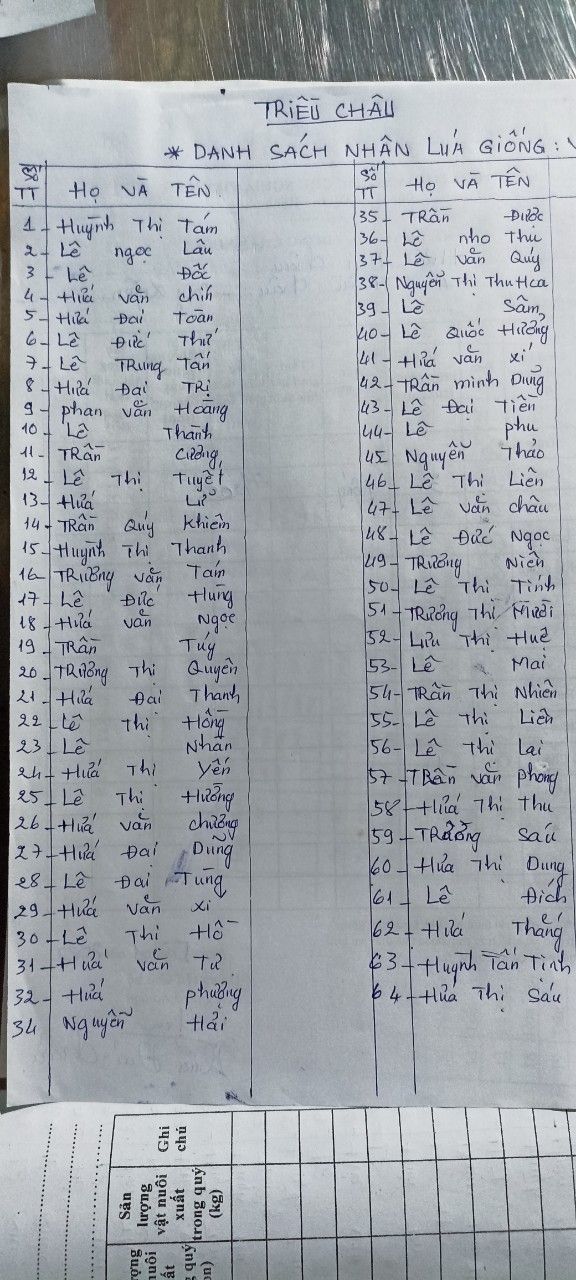 TRIỀU CHÂU
* DANH SÁCH NHÂN LUÁ GIỐNG :
Số TT HỌ VÀ TÊN
1 - Huỳnh Thị Tám
2 - Lê ngọc Lâu
3 - Lê Đốc
4 - Hứa văn chín
5 - Hứa Đại Toàn
6 - Lê Đức Thứ
7 - Lê TRung Tấn
8 - Hứa Đại TRị
9 - phan văn Hoàng
10 - Lê Thành
11 - TRần Cường
12 - Lê Thị Tuyết
13 - Hứa Lữ
14 - TRần Quý Khiêm
15 - Huỳnh Thị Thanh
16 - TRương văn Tám
17 - Lê Đức Hùng
18 - Hứa văn Ngọc
19 - TRần Túy
20 - TRương Thị Quyên
21 - Hứa Đại Thanh
22 - Lê Thị Hồng
23 - Lê Nhân
24 - Hứa Thị Yến
25 - Lê Thị Hường
26 - Hứa văn chương
27 - Hứa Đại Dũng
28 - Lê Đại Tùng
29 - Hứa văn xi
30 - Lê Thị Hồ
31 - Hứa văn Tư
32 - Hứa phượng
34 Nguyễn Hải
Số TT HỌ VÀ TÊN
35 - TRần Được
36 - Lê nho Thu
37 - Lê văn Quý
38 - Nguyễn Thị Thu Hoa
39 - Lê Sâm
40 - Lê Quốc Hưởng
41 - Hứa văn xí
42 - TRần minh Dũng
43 - Lê Đại Tiến
44 - Lê phu
45 Nguyễn Thảo
46 - Lê Thị Liên
47 - Lê văn châu
48 - Lê Đức Ngọc
49 - TRương Niên
50 - Lê Thị Tính
51 - TRương Thị Mười
52 - Lưu Thị Huế
53 - Lê Mai
54 - TRần Thị Nhiên
55 - Lê Thị Liên
56 - Lê Thị Lai
57 - TRần văn phong
58 - Hứa Thị Thu
59 - TRương Sáu
60 - Hứa Thị Dung
61 - Lê Đích
62 - Hứa Thắng
63 - Huỳnh Tấn Tịnh
64 - Hứa Thị Sáu
Ghi chú
Sản lượng vật nuôi xuất trong quý (kg)